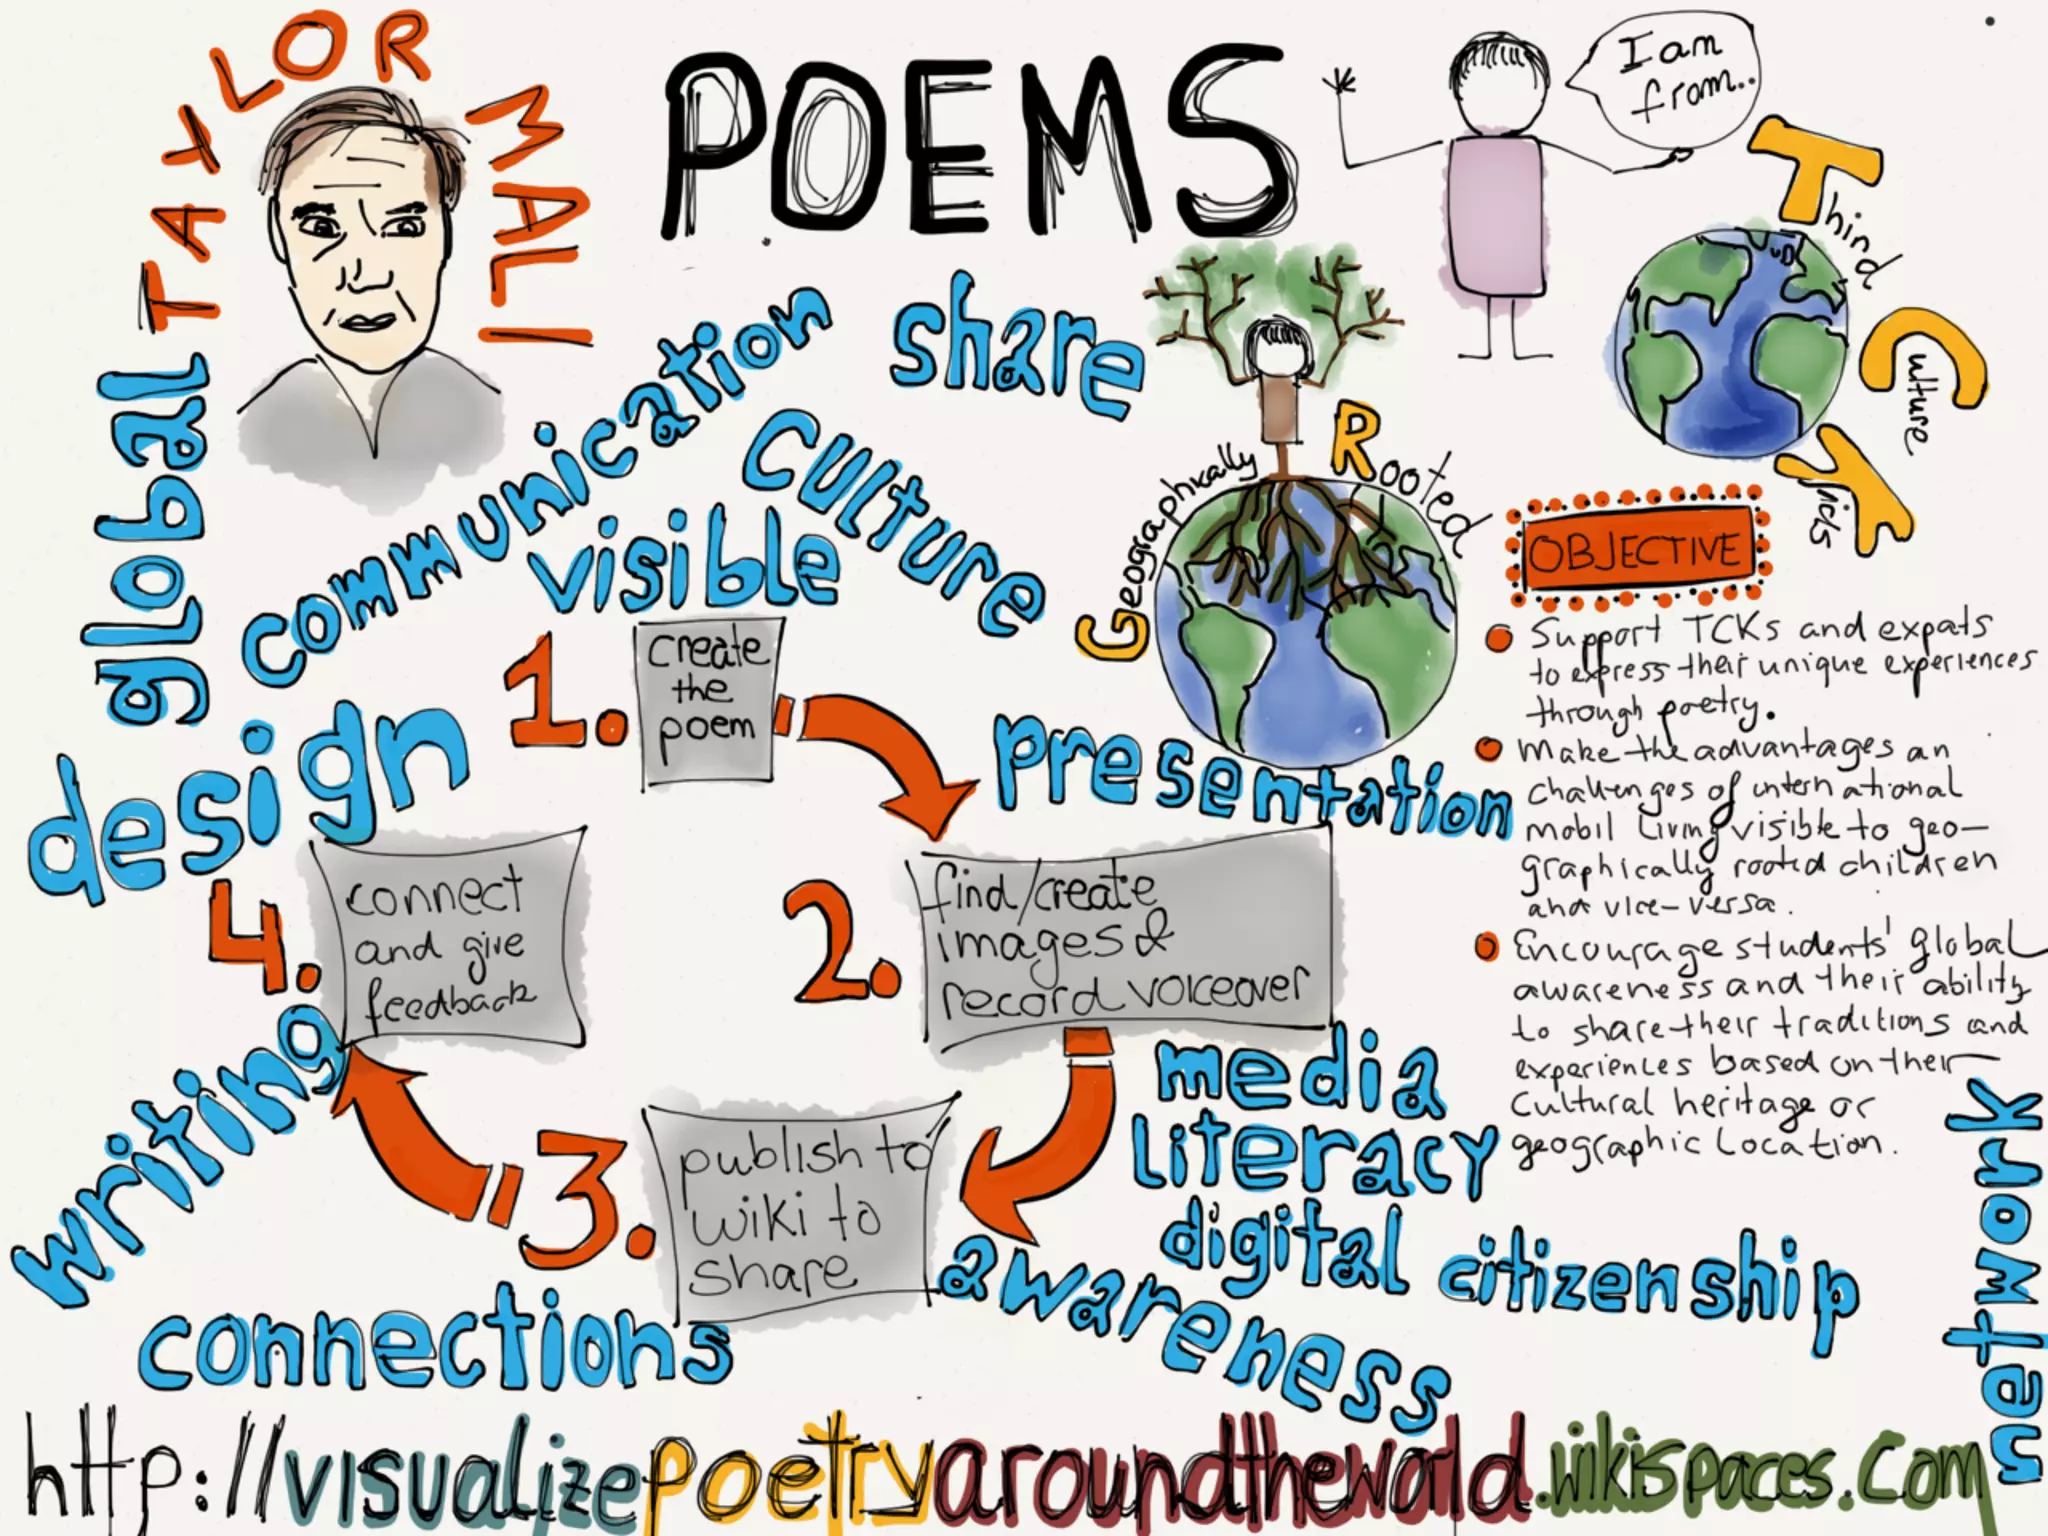 TAYLOR MALI
POEMS
I am
from..
Third
Culture
Kids
global
communication
share
culture
visible
Geographically
Rooted
design
presentation
1.
create
the
poem
2.
find/create
images &
record voiceover
3.
publish to
wiki to
share
4.
connect
and give
feedback
writing
connections
awareness
media
literacy
digital citizenship
network
OBJECTIVE
Support TCKs and expats
to express their unique experiences
through poetry.
Make the advantages an
challenges of international
mobil living visible to geo-
graphically rooted children
and vice-versa.
Encourage students' global
awareness and their ability
to share their traditions and
experiences based on their
cultural heritage or
geographic location.
http://visualizepoetryaroundtheworld.wikispaces.com